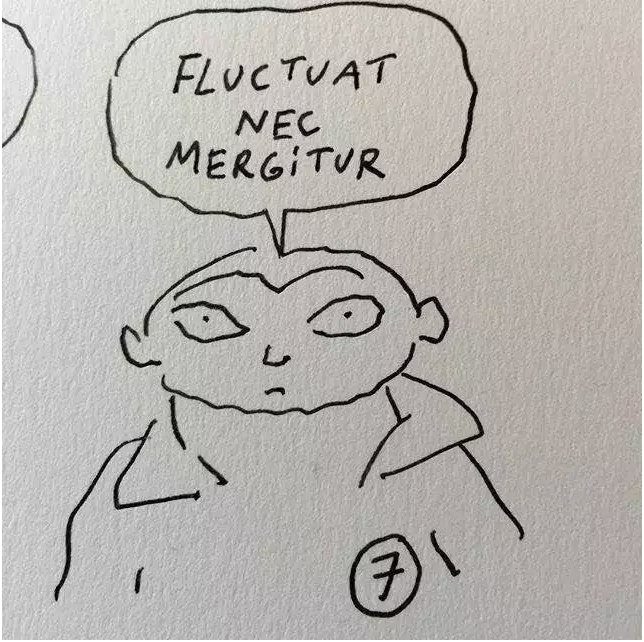 FLUCTUAT
NEC
MERGITUR
7